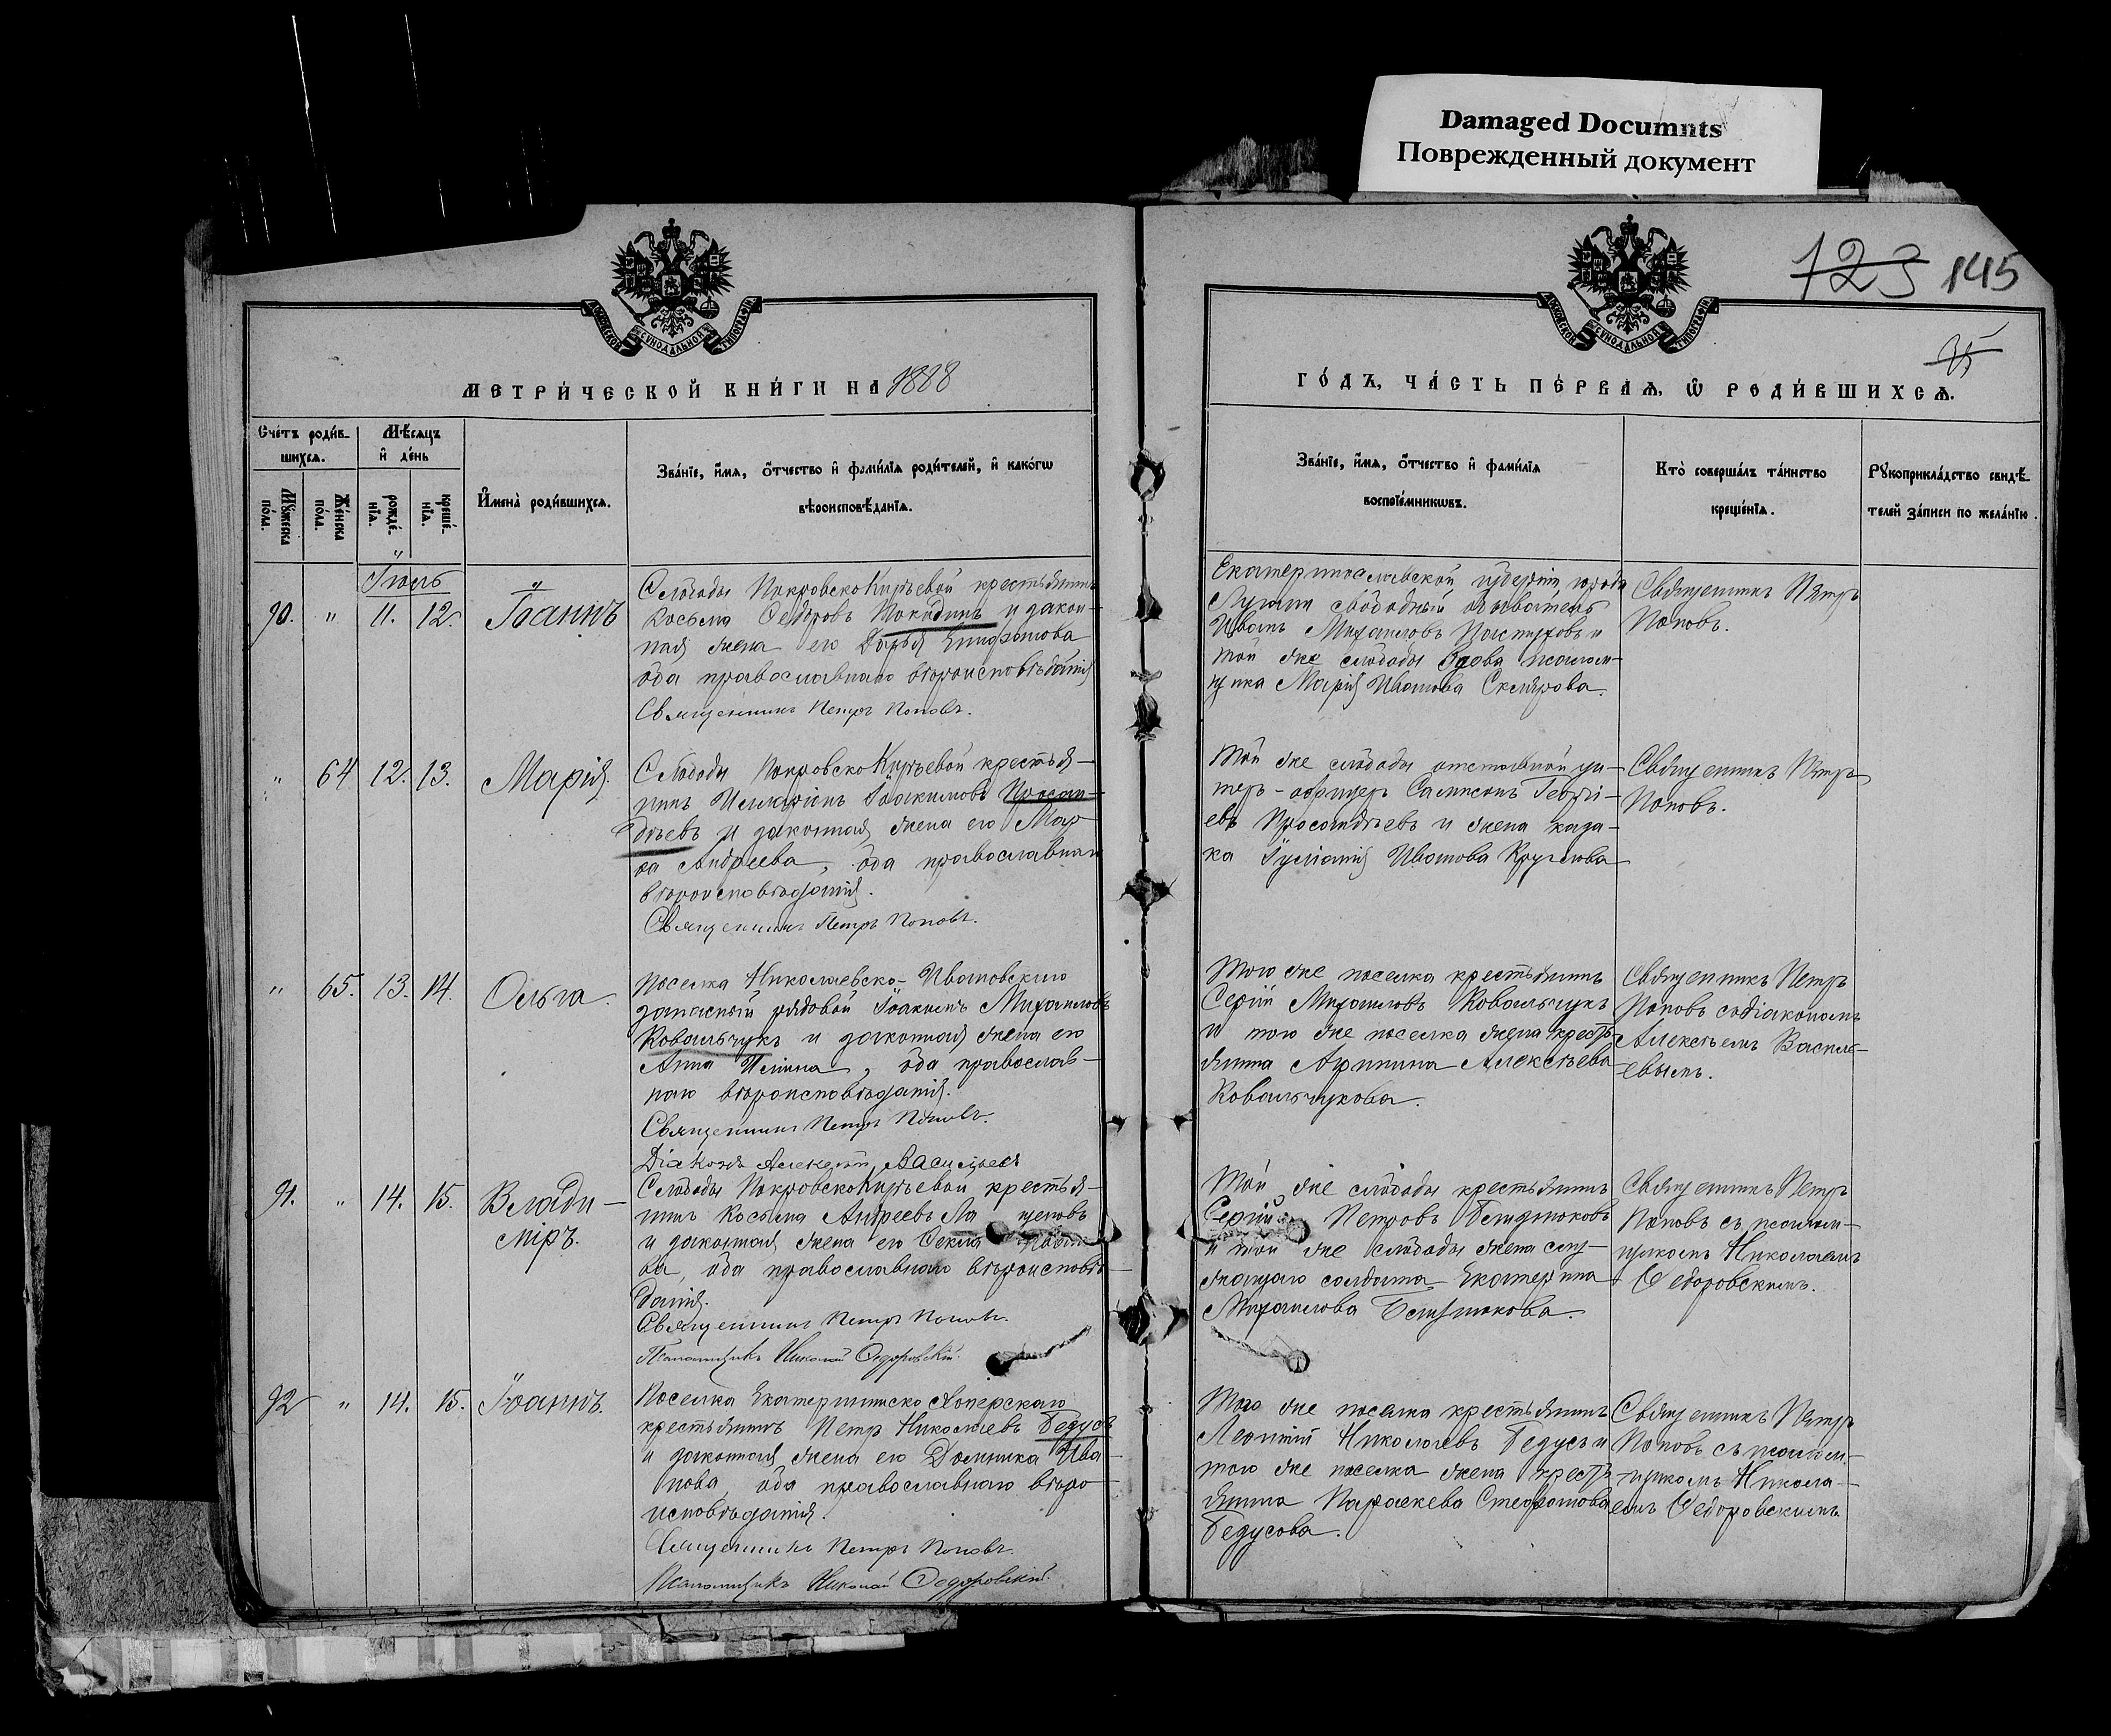 Damaged Documnts
Поврежденный документ
123 145
35
МЕТРИ́ЧЕСКОЙ КНИ́ГИ НА 1888
ГО́ДЪ, ЧА́СТЬ ПЕ́РВАѦ, Ѽ РОДИ́ВШИХСѦ.
Сче́тъ роди́в-
шихсѧ.
Мѣ́сѧцъ
и҆ де́нь
Мꙋ́жеска
по́ла.
Же́нска
по́ла.
рожде́-
нїѧ.
креще́-
нїѧ.
И҆мена̀ роди́вшихсѧ.
Зва́нїе, и҆́мѧ, ѻ҆́тчество и҆ фами́лїѧ роди́телей, и҆ како́гѡ
вѣроисповѣ́данїѧ.
Зва́нїе, и҆́мѧ, ѻ҆́тчество и҆ фами́лїѧ
воспрїе́мникѡвъ.
Кто̀ соверша́лъ та́инство
креще́нїѧ.
Рꙋкоприкла́дство свидѣ́-
телей за́писи по жела́нїю.
Іюль
90. " 11. 12. Іоаннъ
Слободы Покровско Кирѣевой крестьянинъ
Косьма Ѳедоровъ Покидинъ и закон-
ная жена его Дарья Епифанова
оба православнаго вѣроисповѣданія
Священникъ Петръ Поповъ.
Екатеринославской губерніи города
Лугани свободный обыватель
Иванъ Михаиловъ Пастуховъ и
той же слободы вдова псалом-
щика Марія Иванова Склярова.
Священникъ Петръ
Поповъ.
" 64 12. 13. Марія.
Слободы Покровско Кирѣевой крестья-
нинъ Илларіонъ Іоакимовъ Просан-
дѣевъ и законная жена его Мар-
ѳа Андреева, оба православнаго
вѣроисповѣданія.
Священникъ Петръ Поповъ.
Той же слободы отставной ун-
теръ-офицеръ Сампсонъ Георгі-
евъ Просандѣевъ и жена каза-
ка Іуліанія Иванова Круглова
Священникъ Петръ
Поповъ.
" 65. 13. 14. Ольга.
Поселка Николаевско-Ивановскаго
запасный рядовой Іоакимъ Михаиловъ
Ковальчукъ и законная жена его
Анна Ильина, оба православ-
наго вѣроисповѣданія.
Священникъ Петръ Поповъ.
Діаконъ Алексѣй Васильевъ
Того же поселка крестьянинъ
Сергій Михаиловъ Ковальчукъ
и того же поселка жена кресть-
янина Агрипина Алексѣева
Ковальчукова.
Священникъ Петръ
Поповъ съ діакономъ
Алексѣемъ Василь-
евымъ.
91. " 14. 15. Влади-
міръ.
Слободы Покровско Кирѣевой крестья-
нинъ Косьма Андреевъ
и законная жена его Ѳекла
ва, оба православнаго вѣроисповѣ-
данія.
Священникъ Петръ Поповъ.
Псаломщикъ Николай Ѳедоровскій.
Той же слободы крестьянинъ
Сергій Петровъ
и той же слободы жена слу-
жащаго солдата Екатерина
Михаилова
Священникъ Петръ
Поповъ съ псалом-
щикомъ Николаемъ
Ѳедоровскимъ.
92 " 14. 15. Іоаннъ.
Поселка Екатериновско Хоперскаго
крестьянинъ Петръ Николаевъ Бедусъ
и законная жена его Домника Ива-
нова, оба православнаго вѣро-
исповѣданія.
Священникъ Петръ Поповъ.
Псаломщикъ Николай Ѳедоровскій.
Того же поселка крестьянинъ
Леонтій Николаевъ Бедусъ и
того же поселка жена кресть-
янина Параскева Стефанова
Бедусова.
Священникъ Петръ
Поповъ съ псалом-
щикомъ Никола-
емъ Ѳедоровскимъ.